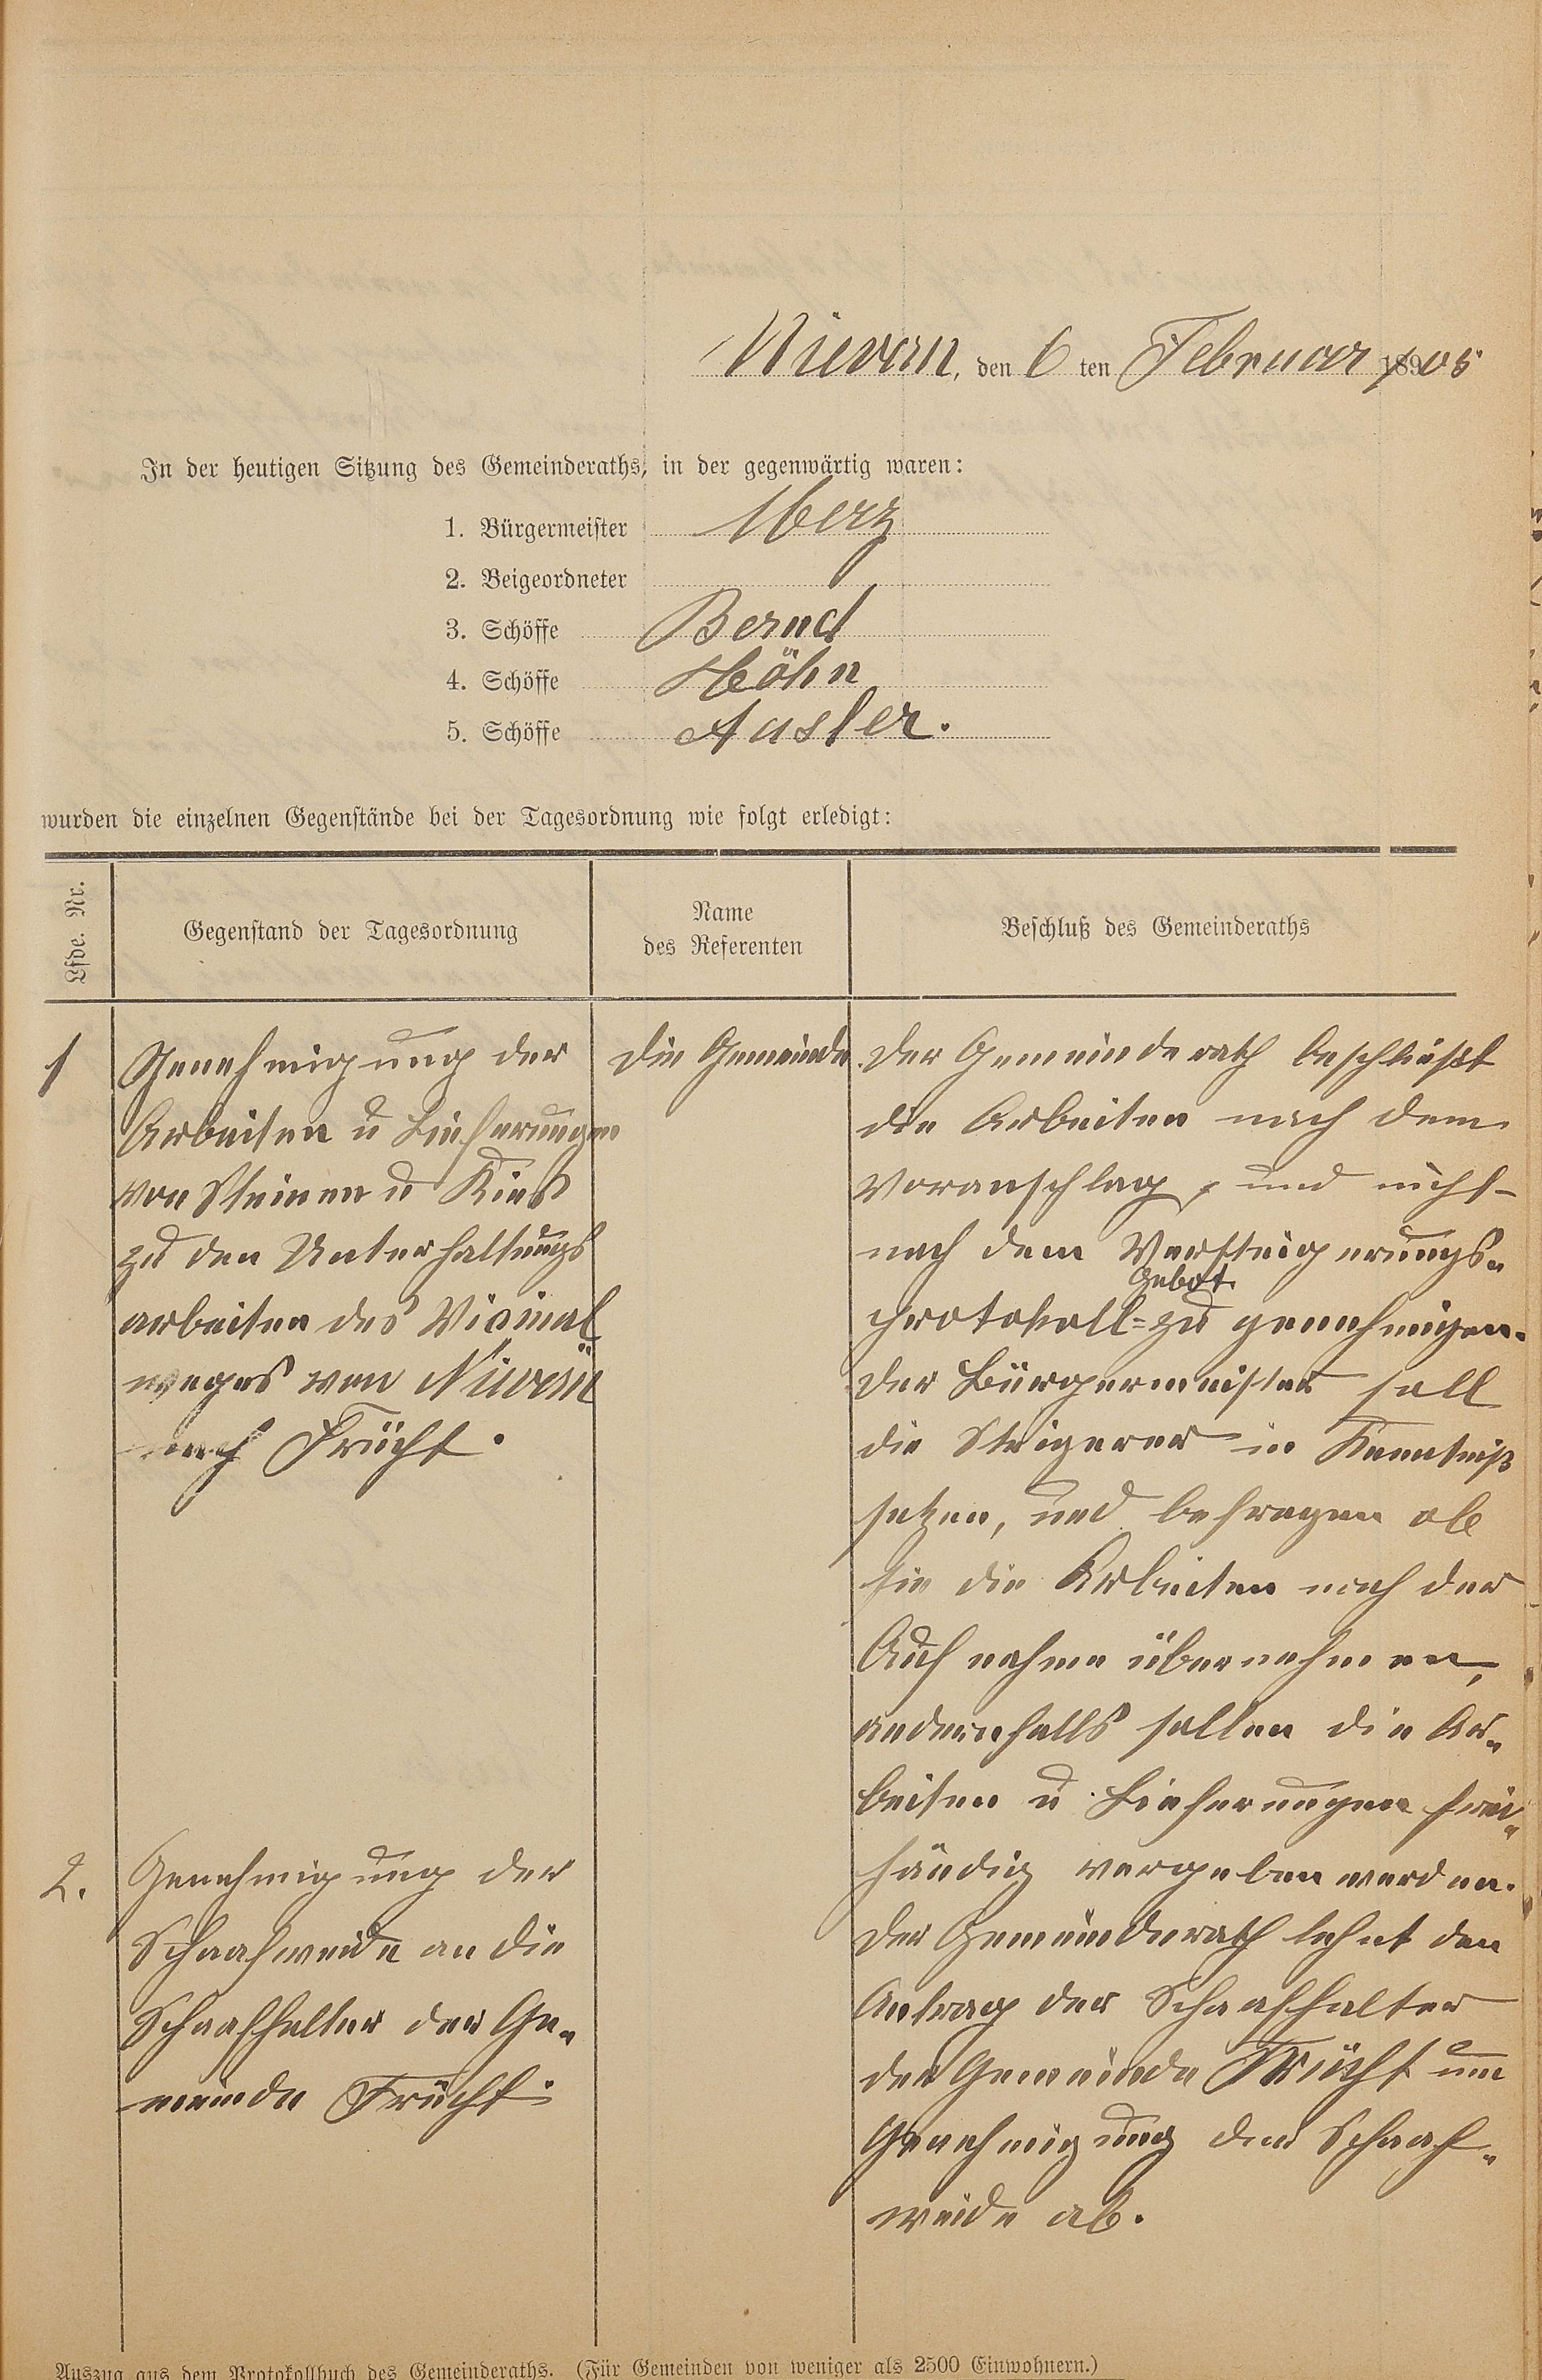 Nievern, den 6 ten Februar 1905
In der heutigen Sitzung des Gemeinderaths, in der gegenwärtig waren:
1. Bürgermeister Merz
2. Beigeordneter
3. Schöffe Bernd
4. Schöffe Höhn
5. Schöffe
wurden die einzelnen Gegenstände bei der Tagesordnung wie folgt erledigt:
Lfde. Nr.
Gegenstand der Tagesordnung
Name
des Referenten
Beschluß des Gemeinderaths
1
Genehmigung der
Arbeiten u Lieferungen
von Steinen u Kies
zu den Unterhaltungs
arbeiten des Vicinal
weges von Nievern
nach Frücht.
die Gemeinde
Der Gemeinderath beschließt
die Arbeiten nach dem
Voranschlag, und nicht
nach dem Versteigerungs-
Gebot
protokoll= zu genehmigen.
Der Bürgermeister soll
die Steigerer in Kenntniß
setzen, und befragen ob
sie die Arbeiten nach der
Aufnahme übernehmen,
andernfalls sollen die Ar-
beiten u Lieferungen frei-
händig vergeben werden.
2.
Genehmigung der
Schaafweide an die
Schaafhalter der Ge-
meinde Frücht.
Der Gemeinderath lehnt den
Antrag der Schaafhalter
der Gemeinde Frücht um
Genehmigung der Schaaf-
weide ab.
Auszug aus dem Protokollbuch des Gemeinderaths. (Für Gemeinden von weniger als 2500 Einwohnern.)